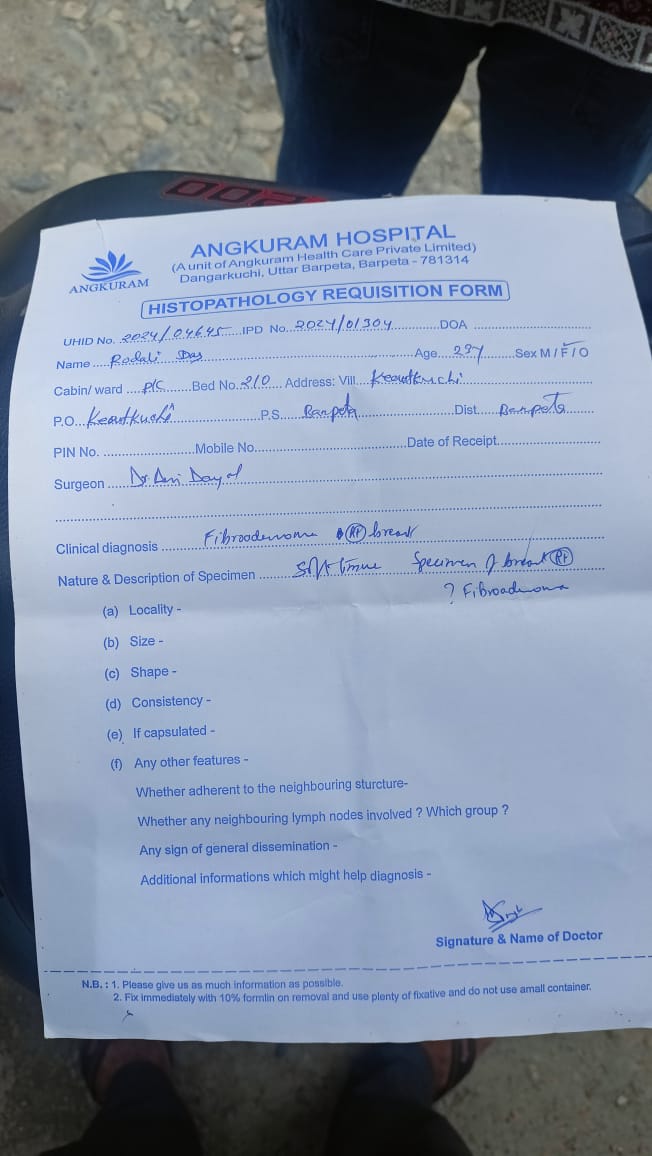 ANGKURAM
ANGKURAM HOSPITAL
(A unit of Angkuram Health Care Private Limited)
Dangarkuchi, Uttar Barpeta, Barpeta - 781314
HISTOPATHOLOGY REQUISITION FORM
UHID No. 2024/04645 IPD No. 2024/01304 DOA
Name Das Age 29Y Sex M / F / O
Cabin/ ward P/C Bed No. 210 Address: Vill. Keotkuchi
P.O. Keotkuchi P.S. Barpeta Dist. Barpeta
PIN No. Mobile No. Date of Receipt
Surgeon Dr Dayal
Clinical diagnosis Fibroadenoma (Rt) breast
Nature & Description of Specimen Soft tissue Specimen of breast (Rt)
? Fibroadenoma
(a) Locality -
(b) Size -
(c) Shape -
(d) Consistency -
(e) If capsulated -
(f) Any other features -
Whether adherent to the neighbouring sturcture-
Whether any neighbouring lymph nodes involved ? Which group ?
Any sign of general dissemination -
Additional informations which might help diagnosis -
Signature & Name of Doctor
N.B. : 1. Please give us as much information as possible.
2. Fix immediately with 10% formlin on removal and use plenty of fixative and do not use amall container.